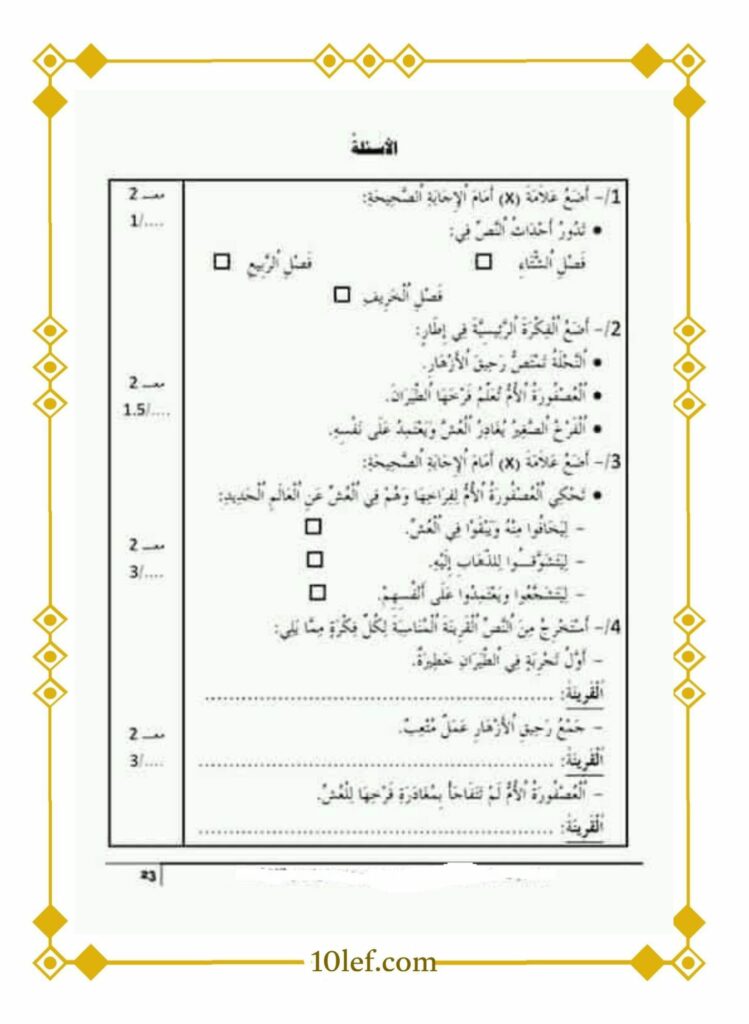 الأسئلة
1/- أَضَعُ عَلَامَةَ (X) أَمَامَ الْإِجَابَةِ الصَّحِيحَةِ:
معـ 2
....../1
• تَدُورُ أَحْدَاثُ النَّصِّ فِي:
فَصْلِ الشِّتَاءِ □ فَصْلِ الرَّبِيعِ □
فَصْلِ الْخَرِيفِ □
2/- أَضَعُ الْفِكْرَةَ الرَّئِيسِيَّةَ فِي إِطَارٍ:
• النَّحْلَةُ تَمْتَصُّ رَحِيقَ الْأَزْهَارِ.
معـ 2
• الْعُصْفُورَةُ الْأُمُّ تُعَلِّمُ فَرْخَهَا الطَّيَرَانَ.
....../1.5
• الْفَرْخُ الصَّغِيرُ يُغَادِرُ الْعُشَّ وَيَعْتَمِدُ عَلَى نَفْسِهِ.
3/- أَضَعُ عَلَامَةَ (X) أَمَامَ الْإِجَابَةِ الصَّحِيحَةِ:
• تَحْكِي الْعُصْفُورَةُ الْأُمُّ لِفِرَاخِهَا وَهُمْ فِي الْعُشِّ عَنِ الْعَالَمِ الْجَدِيدِ:
- لِيَخَافُوا مِنْهُ وَيَبْقَوْا فِي الْعُشِّ. □
معـ 2
- لِيَتَشَوَّقُوا لِلذَّهَابِ إِلَيْهِ. □
....../3
- لِيَتَشَجَّعُوا وَيَعْتَمِدُوا عَلَى أَنْفُسِهِمْ. □
4/- أَسْتَخْرِجُ مِنَ النَّصِّ الْقَرِينَةَ الْمُنَاسِبَةَ لِكُلِّ فِكْرَةٍ مِمَّا يَلِي:
- أَوَّلُ تَجْرِبَةٍ فِي الطَّيَرَانِ خَطِيرَةٌ.
الْقَرِينَةُ: ......................................................
- جَمْعُ رَحِيقِ الْأَزْهَارِ عَمَلٌ مُتْعِبٌ.
معـ 2
الْقَرِينَةُ: ......................................................
....../3
- الْعُصْفُورَةُ الْأُمُّ لَمْ تَتَفَاجَأْ بِمُغَادَرَةِ فَرْخِهَا لِلْعُشِّ.
الْقَرِينَةُ: ......................................................
23
10lef.com